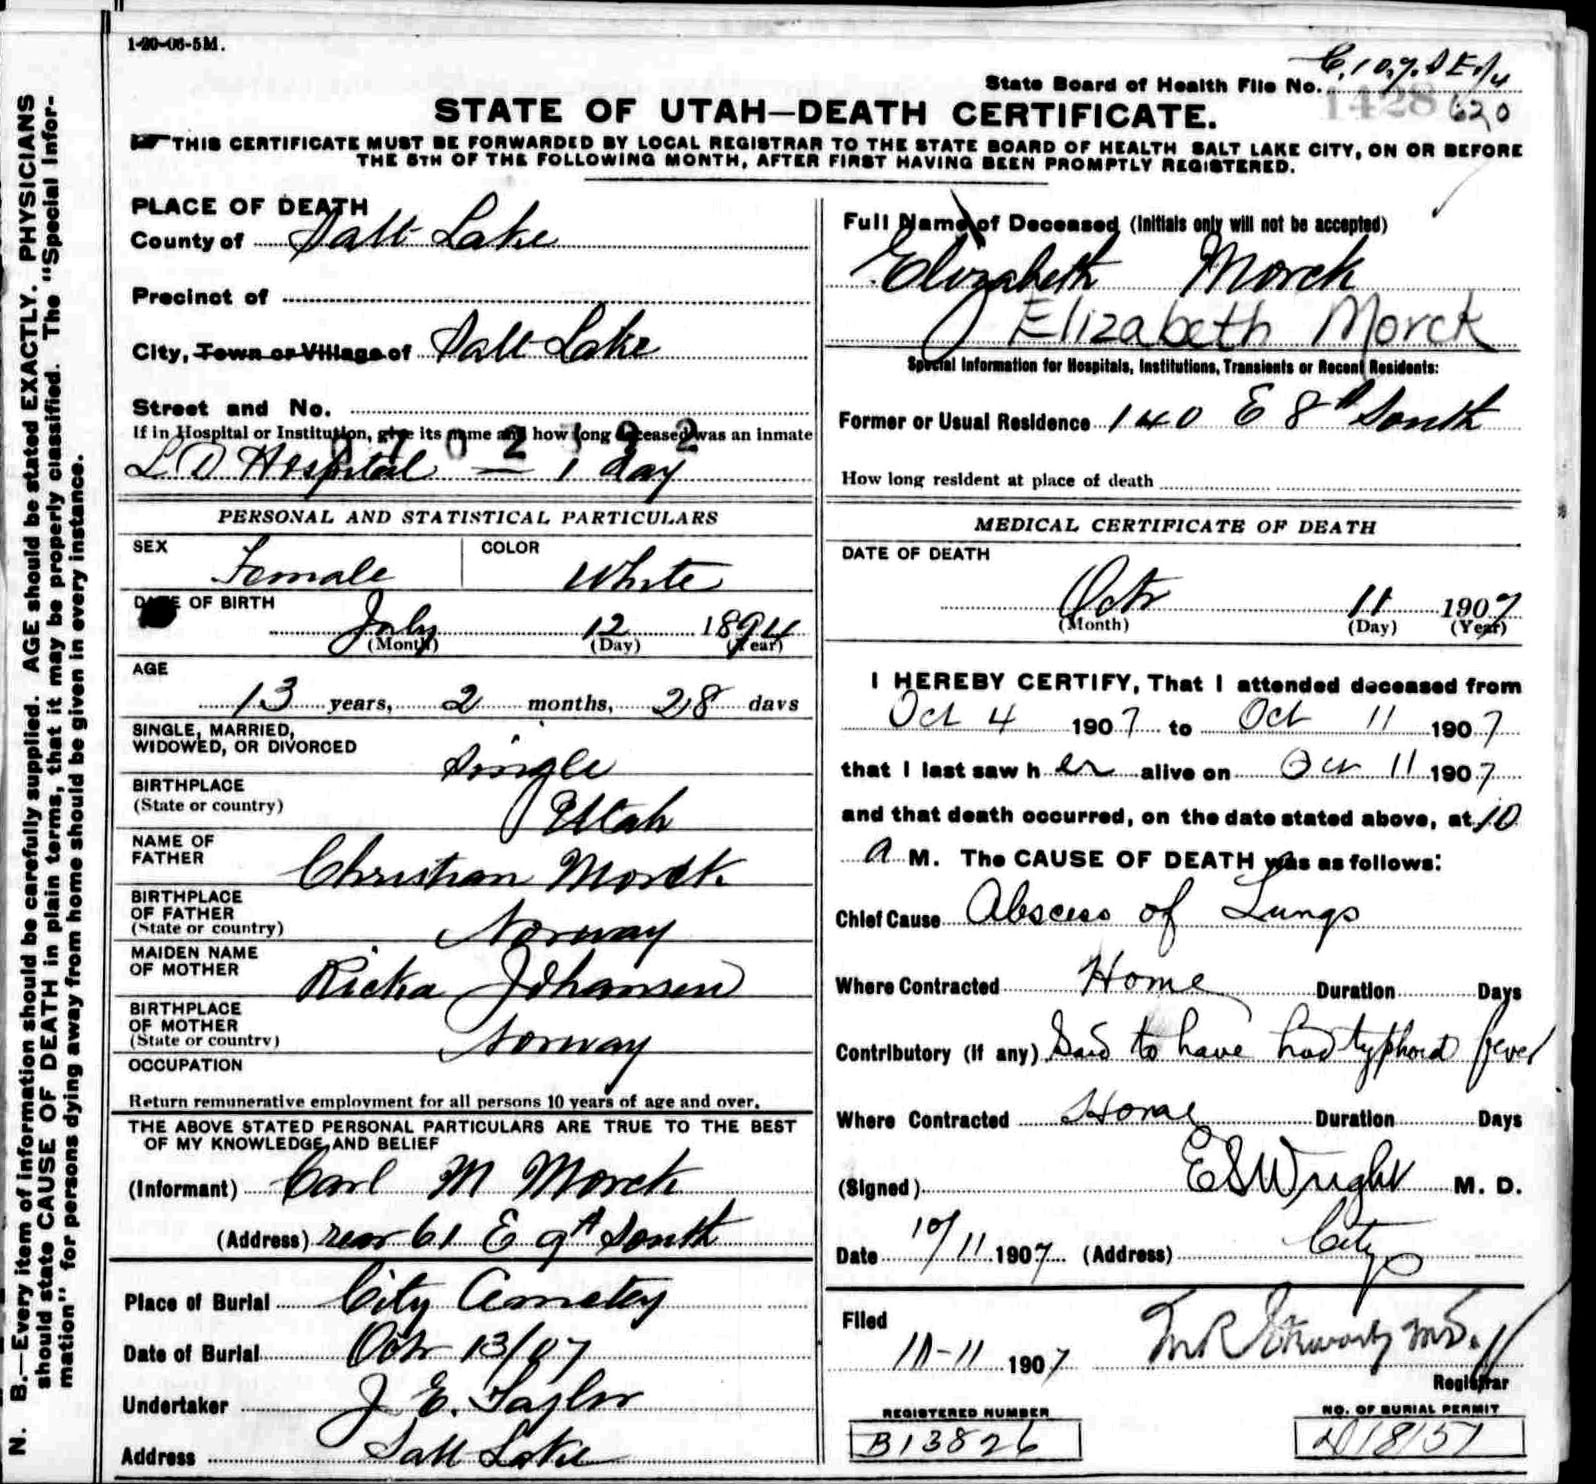 1-20-06-5M.
State Board of Health File No.
1428 620
STATE OF UTAH—DEATH CERTIFICATE.
THIS CERTIFICATE MUST BE FORWARDED BY LOCAL REGISTRAR TO THE STATE BOARD OF HEALTH SALT LAKE CITY, ON OR BEFORE
THE 5TH OF THE FOLLOWING MONTH, AFTER FIRST HAVING BEEN PROMPTLY REGISTERED.
N. B.—Every item of information should be carefully supplied. AGE should be stated EXACTLY. PHYSICIANS
should state CAUSE OF DEATH in plain terms, that it may be properly classified. The "Special Infor-
mation" for persons dying away from home should be given in every instance.
PLACE OF DEATH
County of Salt Lake
Precinct of
City, Town or Village of Salt Lake
Street and No.
If in Hospital or Institution, give its name and how long deceased was an inmate
L D Hospital — 1 day
PERSONAL AND STATISTICAL PARTICULARS
SEX Female COLOR White
DATE OF BIRTH
July 12 1894
(Month) (Day) (Year)
AGE
13 years, 2 months, 28 days
SINGLE, MARRIED,
WIDOWED, OR DIVORCED Single
BIRTHPLACE
(State or country) Utah
NAME OF
FATHER Christian Morck
BIRTHPLACE
OF FATHER
(State or country) Norway
MAIDEN NAME
OF MOTHER Ricka Johansen
BIRTHPLACE
OF MOTHER
(State or country) Norway
OCCUPATION
Return remunerative employment for all persons 10 years of age and over.
THE ABOVE STATED PERSONAL PARTICULARS ARE TRUE TO THE BEST
OF MY KNOWLEDGE AND BELIEF
(Informant) Carl M Morck
(Address) rear 61 E 9th South
Place of Burial City Cemetery
Date of Burial Oct 13/07
Undertaker J. E. Taylor
Address Salt Lake
Full Name of Deceased (Initials only will not be accepted)
Elizabeth Morck
Elizabeth Morck
Special Information for Hospitals, Institutions, Transients or Recent Residents:
Former or Usual Residence 140 E 8th South
How long resident at place of death
MEDICAL CERTIFICATE OF DEATH
DATE OF DEATH
Oct 11 1907
(Month) (Day) (Year)
I HEREBY CERTIFY, That I attended deceased from
Oct 4 1907 to Oct 11 1907
that I last saw her alive on Oct 11 1907
and that death occurred, on the date stated above, at 10
a M. The CAUSE OF DEATH was as follows:
Chief Cause Abscess of Lungs
Where Contracted Home Duration Days
Contributory (if any) Said to have had typhoid fever
Where Contracted Home Duration Days
(Signed) E S Wright M. D.
Date 10/11 1907 (Address) City
Filed
10-11 1907
Registrar
REGISTERED NUMBER
B13826
NO. OF BURIAL PERMIT